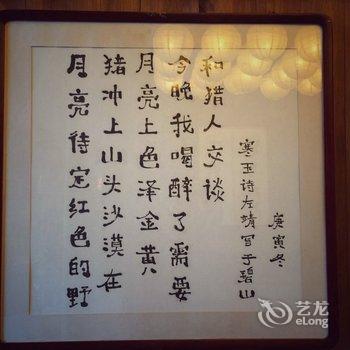 月亮待定红色的野
猪冲上山头沙漠在
月亮上色泽金黄
今晚我喝醉了需要
和猎人交谈
寒玉诗左靖写于碧山
庚寅冬
艺龙
eLong